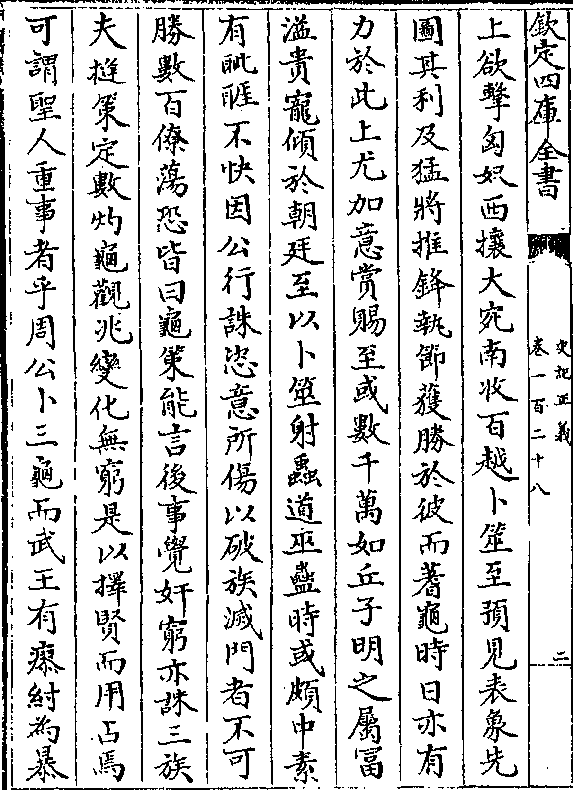 欽定四庫全書
史記正義
卷一百二十八
二
上欲擊匈奴西攘大宛南收百越卜筮至預見表象先
圖其利及猛將推鋒執節獲勝於彼而蓍龜時日亦有
力於此上尤加意賞賜至或數千萬如丘子明之屬富
溢貴寵傾於朝廷至以卜筮射蠱道巫蠱時或頗中素
有眦睚不快因公行誅恣意所傷以破族滅門者不可
勝數百僚蕩恐皆曰龜策能言後事覺奸窮亦誅三族
夫摓策定數灼龜觀兆變化無窮是以擇賢而用占焉
可謂聖人重事者乎周公卜三龜而武王有瘳紂為暴